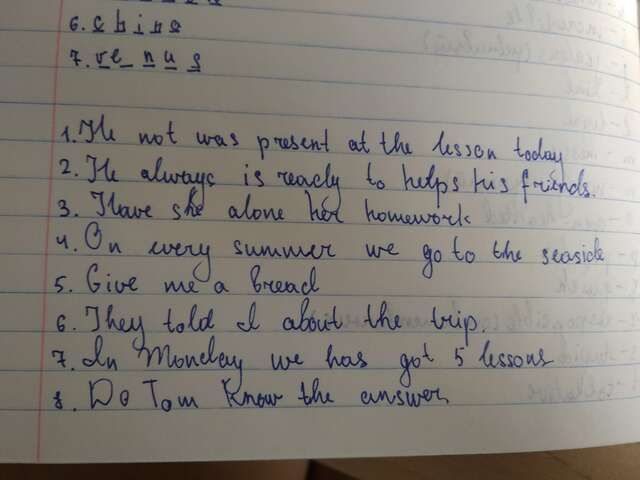 6. china
7. venus
1. He not was present at the lesson today
2. He always is ready to helps his friends.
3. Have she alone her homework
4. On every summer we go to the seaside
5. Give me a bread
6. They told I about the trip.
7. In Monday we has got 5 lessons
8. Do Tom know the answer